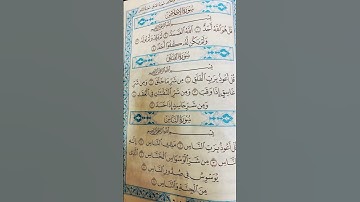 سورة الإخلاص
قل هو الله أحد الله الصمد لم يلد ولم يولد
ولم يكن له كفوا أحد
سورة الفلق
قل أعوذ برب الفلق من شر ما خلق ومن شر
غاسق إذا وقب ومن شر النفاثات في العقد
ومن شر حاسد إذا حسد
سورة الناس
قل أعوذ برب الناس ملك الناس إله
الناس من شر الوسواس الخناس الذي
يوسوس في صدور الناس
من الجنة والناس